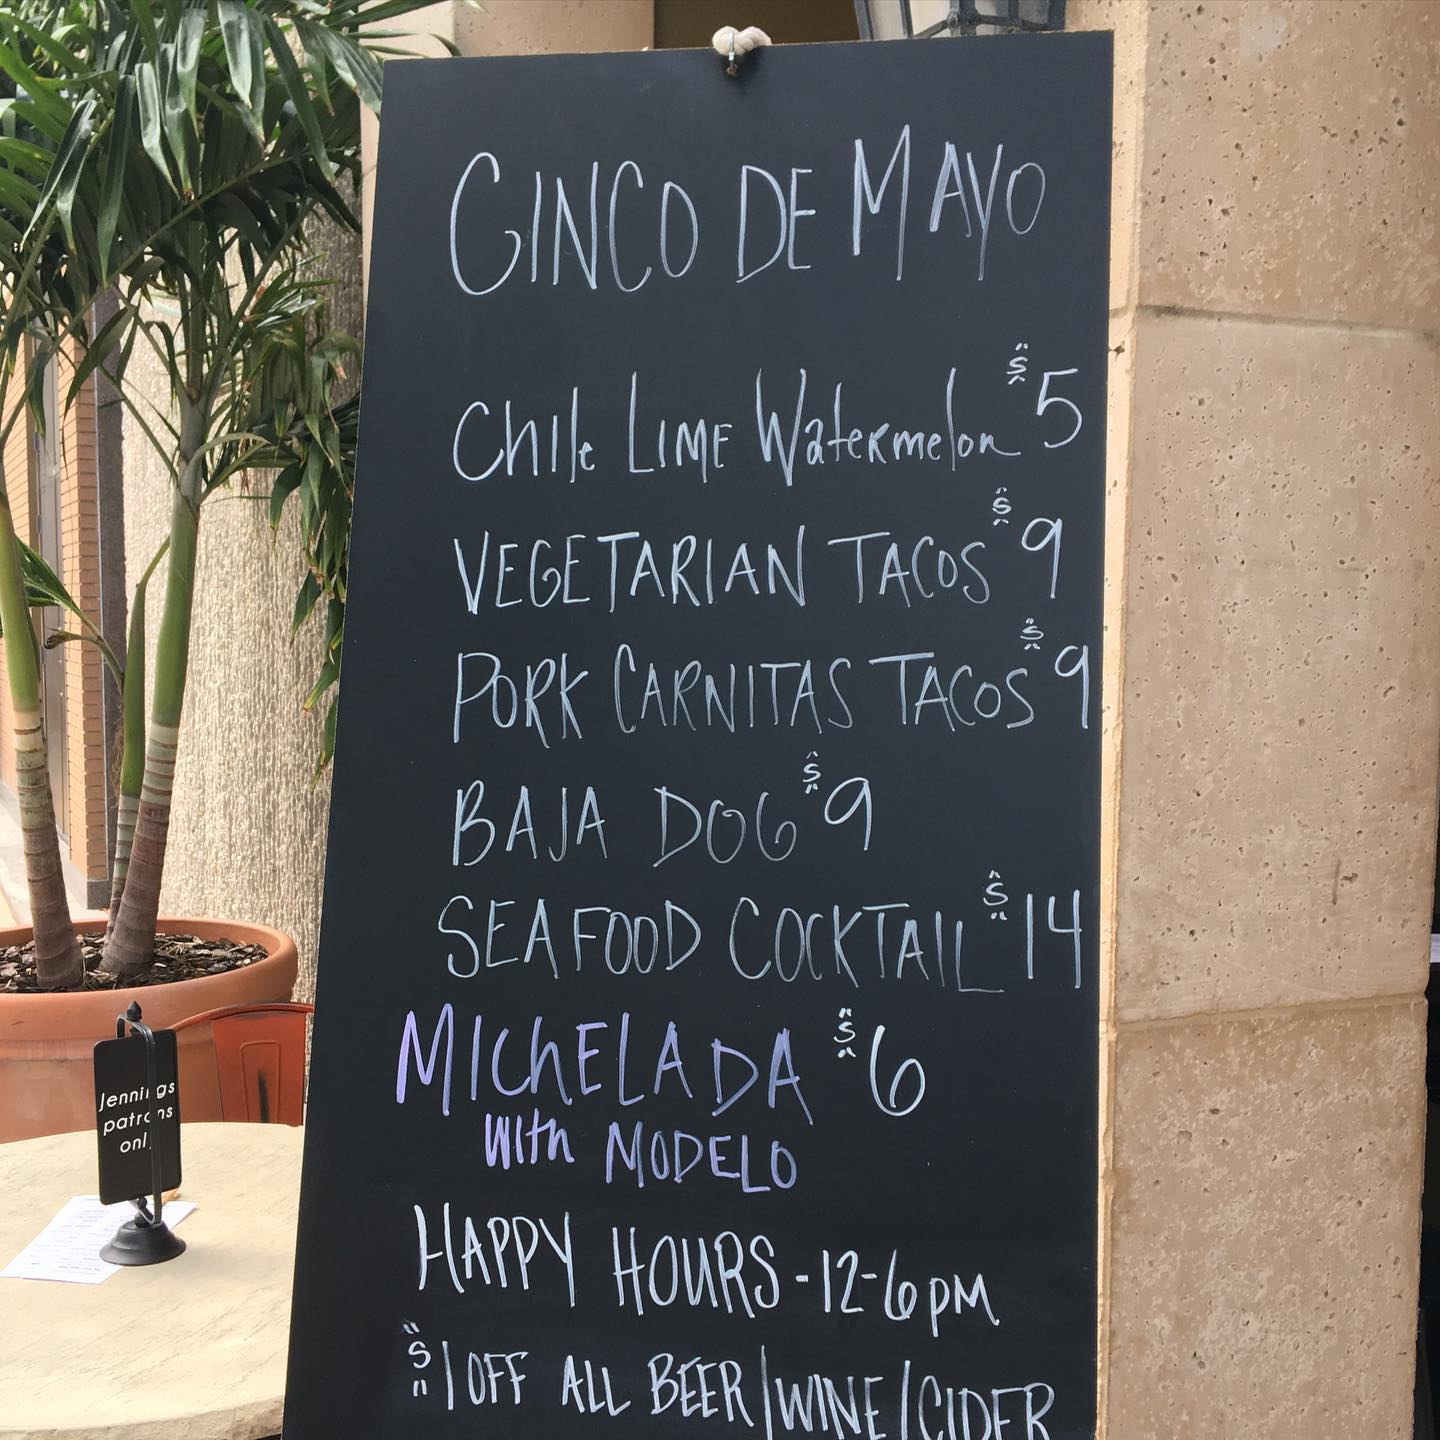 CINCO DE MAYO
Chile LIME Watermelon $5
VEGETARIAN TACOS $9
PORK CARNITAS TACOS $9
BAJA DOG $9
SEAFOOD COCKTAIL $14
MICHELADA $6
with MODELO
HAPPY HOURS - 12-6pm
$1 OFF ALL BEER/WINE/CIDER
Jennings
patrons
only